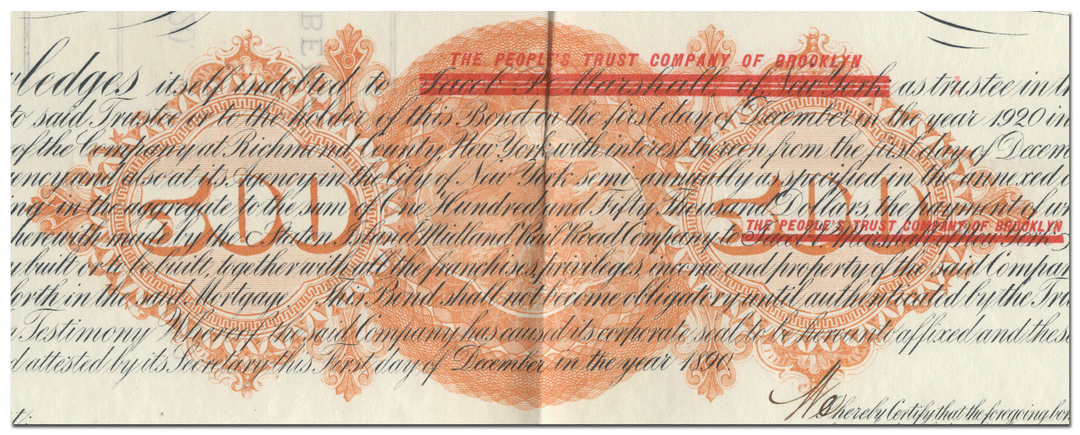 THE PEOPLE'S TRUST COMPANY OF BROOKLYN
ledges itself indebted to Jacob P. Marshall of New York as trustee in
to said Trustee or to the holder of this Bond on the first day of December in the year 1920 in
of the Company at Richmond County New York with interest thereon from the first day of Decem
and also at its Agency in the City of New York semi annually as specified in the annexed
in the aggregate to the sum of One Hundred and Fifty Thousand Dollars the payment of
THE PEOPLE'S TRUST COMPANY OF BROOKLYN
herewith made by the Staten Island Midland Rail Road Company to
built or to be built, together with all the franchises, privileges, income and property of the said Compan
forth in the said Mortgage This Bond shall not become obligatory until authenticated by the Tru
Testimony Whereof the said Company has caused its corporate seal to be hereunto affixed and these
attested by its Secretary this First day of December in the year 1890.
500 500
We hereby Certify that the foregoing bon